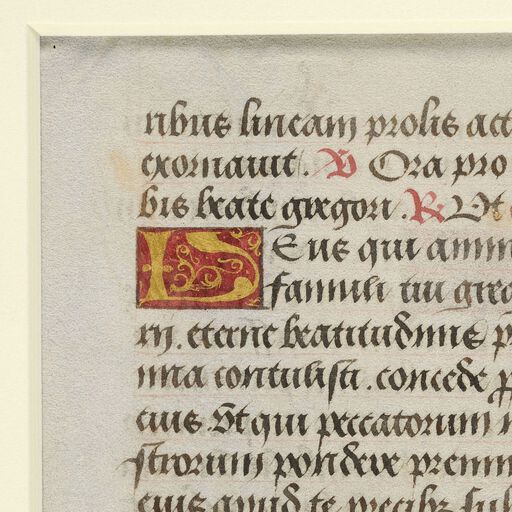 ribus lineam prolis act
exornavit. V Ora pro
bis beate gregori. R Ut
Deus qui anim
famuli tui greg
rii. eterne beatitudinis p
mia contulisti. concede p
cius. Ut qui peccatorum n
strorum pondere premim
eius apud te precibz sul